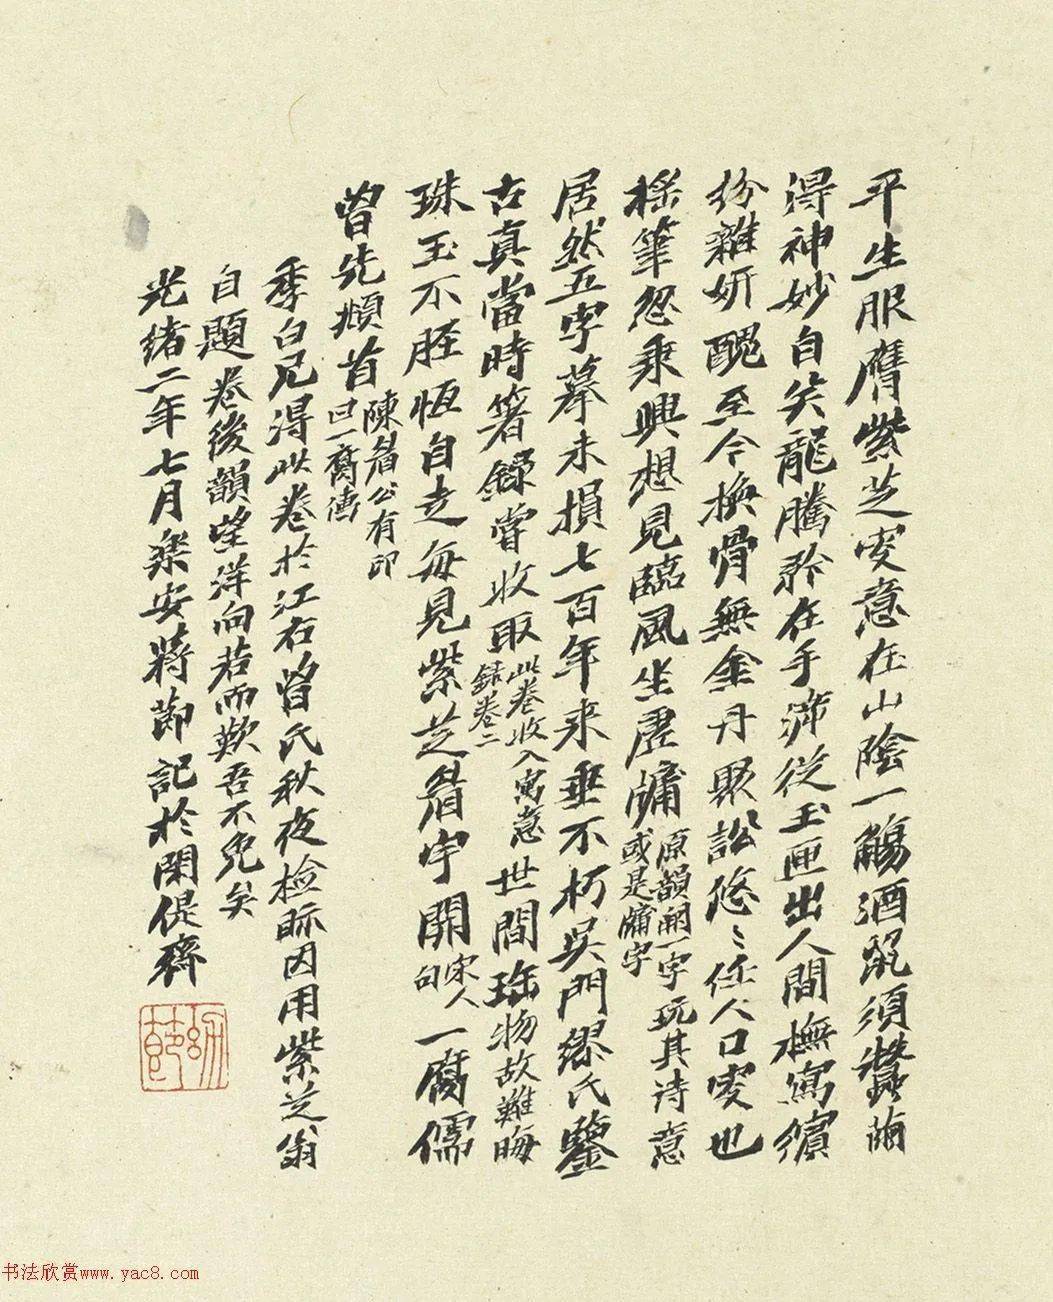 平生服膺紫芝叟意在山陰一觴酒鼠須蠶繭
得神妙自矣龍騰矜在手沛從玉匣出人間橅寫繽
紛雜妍醜至今換骨無金丹聚訟悠〻任人口叟也
搖筆忽乘興想見臨風坐虛牖原韻闕一字玩其诗意
或是牖字
居然五字摹未損七百年來垂不朽吳門繆氏鑒
古真當時箸錄嘗收取此卷收入寓意
錄卷二世間珎物故難晦
珠玉不脛恆自走每見紫芝眉宇開宋人
句一腐儒
曾先頓首陳眉公有印
曰一腐儒
季白兄得此卷於江右曾氏秋夜檢眎因用紫芝翁
自題卷後韻望洋向若而歎吾不免矣
光緒二年七月樂安蔣節記於閑偍齋
书法欣赏www.yac8.com